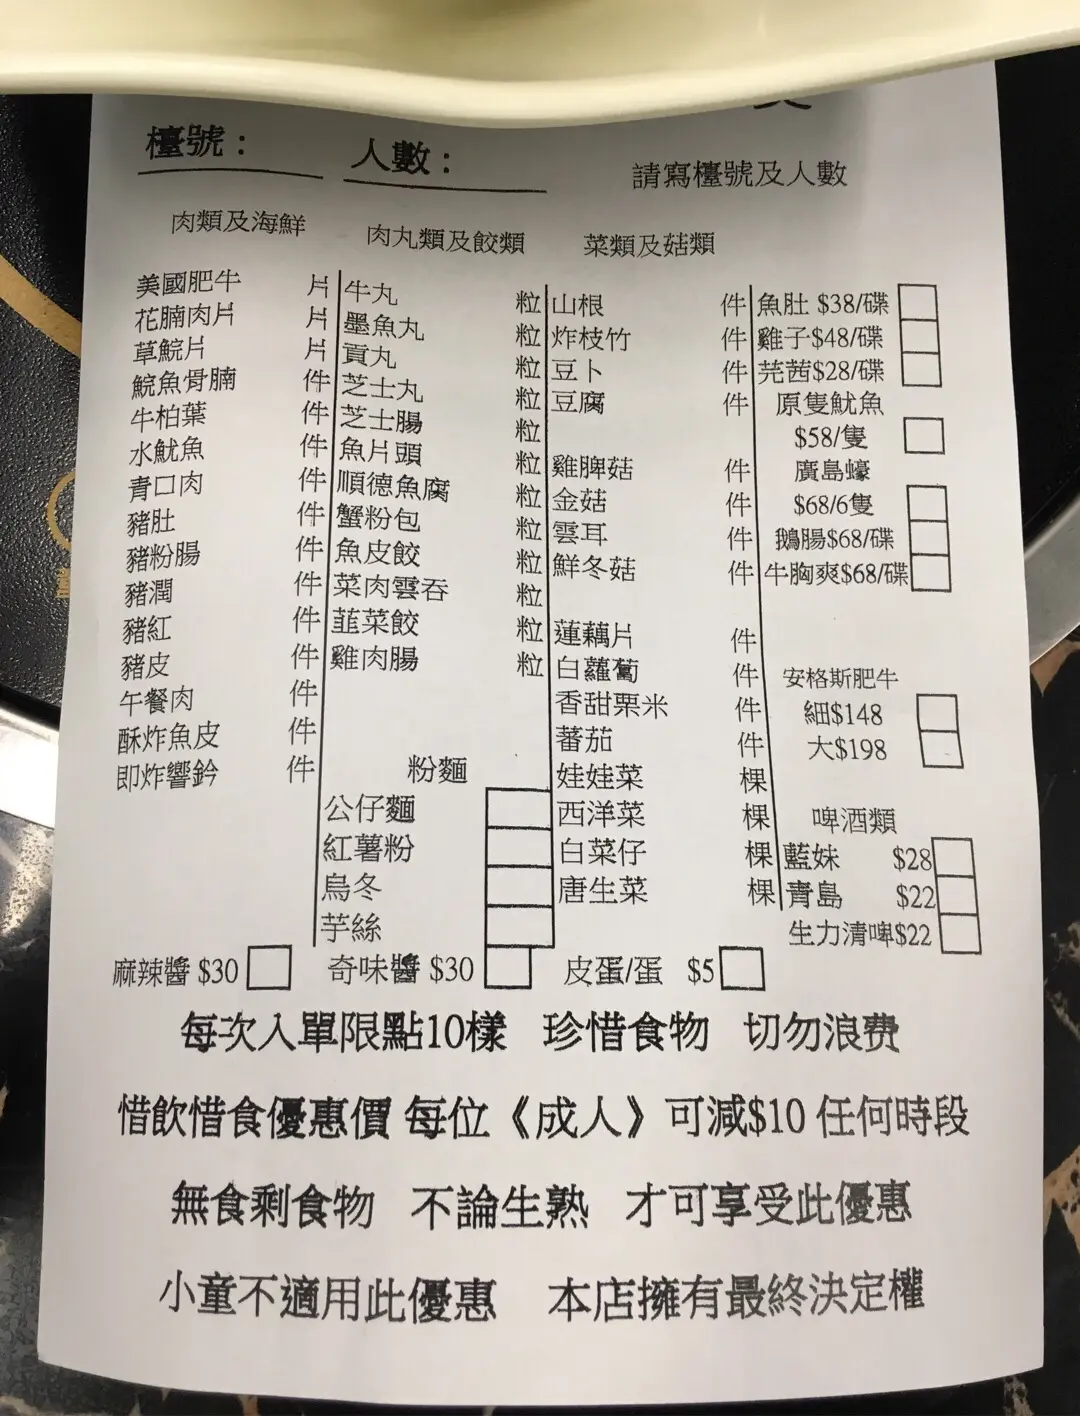 檯號：
人數：
請寫檯號及人數
肉類及海鮮
美國肥牛 片
花腩肉片 片
草鯇片 片
鯇魚骨腩 件
牛柏葉 件
水魷魚 件
青口肉 件
豬肚 件
豬粉腸 件
豬潤 件
豬紅 件
豬皮 件
午餐肉 件
酥炸魚皮 件
即炸響鈴 件
肉丸類及餃類
牛丸 粒
墨魚丸 粒
貢丸 粒
芝士丸 粒
芝士腸 粒
魚片頭 粒
順德魚腐 粒
蟹粉包 粒
魚皮餃 粒
菜肉雲吞 粒
韮菜餃 粒
雞肉腸 粒
粉麵
公仔麵
紅薯粉
烏冬
芋絲
菜類及菇類
山根 件
炸枝竹 件
豆卜 件
豆腐 件
雞脾菇 件
金菇 件
雲耳 件
鮮冬菇 件
蓮藕片 件
白蘿蔔 件
香甜栗米 件
蕃茄 件
娃娃菜 棵
西洋菜 棵
白菜仔 棵
唐生菜 棵
魚肚 $38/碟
雞子$48/碟
芫茜$28/碟
原隻魷魚
$58/隻
廣島蠔
$68/6隻
鵝腸$68/碟
牛胸爽$68/碟
安格斯肥牛
細$148
大$198
啤酒類
藍妹 $28
青島 $22
生力清啤$22
麻辣醬 $30 奇味醬 $30 皮蛋/蛋 $5
每次入單限點10樣 珍惜食物 切勿浪费
惜飲惜食優惠價 每位《成人》可減$10 任何時段
無食剩食物 不論生熟 才可享受此優惠
小童不適用此優惠 本店擁有最終決定權